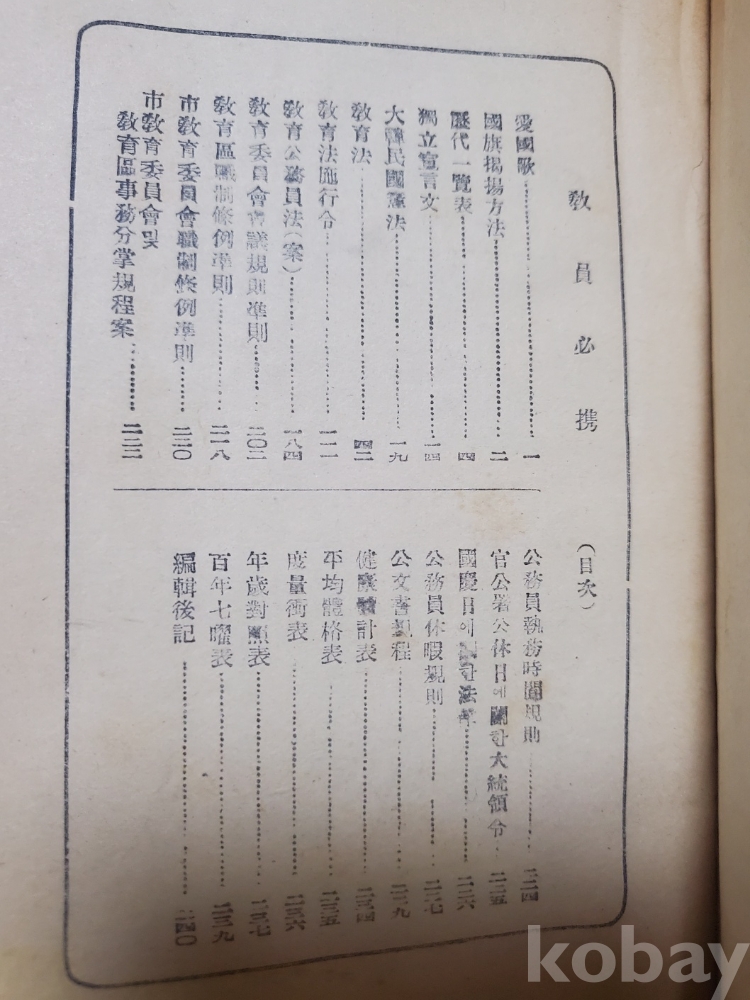 敎員必携
(目次)
愛國歌 一
國旗揭揚方法 二
歷代一覽表 四
獨立宣言文 一四
大韓民國憲法 一九
敎育法 四二
敎育法施行令 一一一
敎育公務員法(案) 一八四
敎育委員會會議規則準則 二〇二
敎育區職制條例準則 二一八
市敎育委員會職制條例準則 二二〇
市敎育委員會 및
敎育區事務分掌規程案 二二二
公務員執務時間規則 二二四
官公署公休日에關한大統領令 二二五
國慶日에關한法律 二二六
公務員休暇規則 二二七
公文書規程 二二九
健康計表 二三四
平均體格表 二三五
度量衡表 二三六
年歲對照表 二三七
百年七曜表 二三九
編輯後記 二四〇
kobay